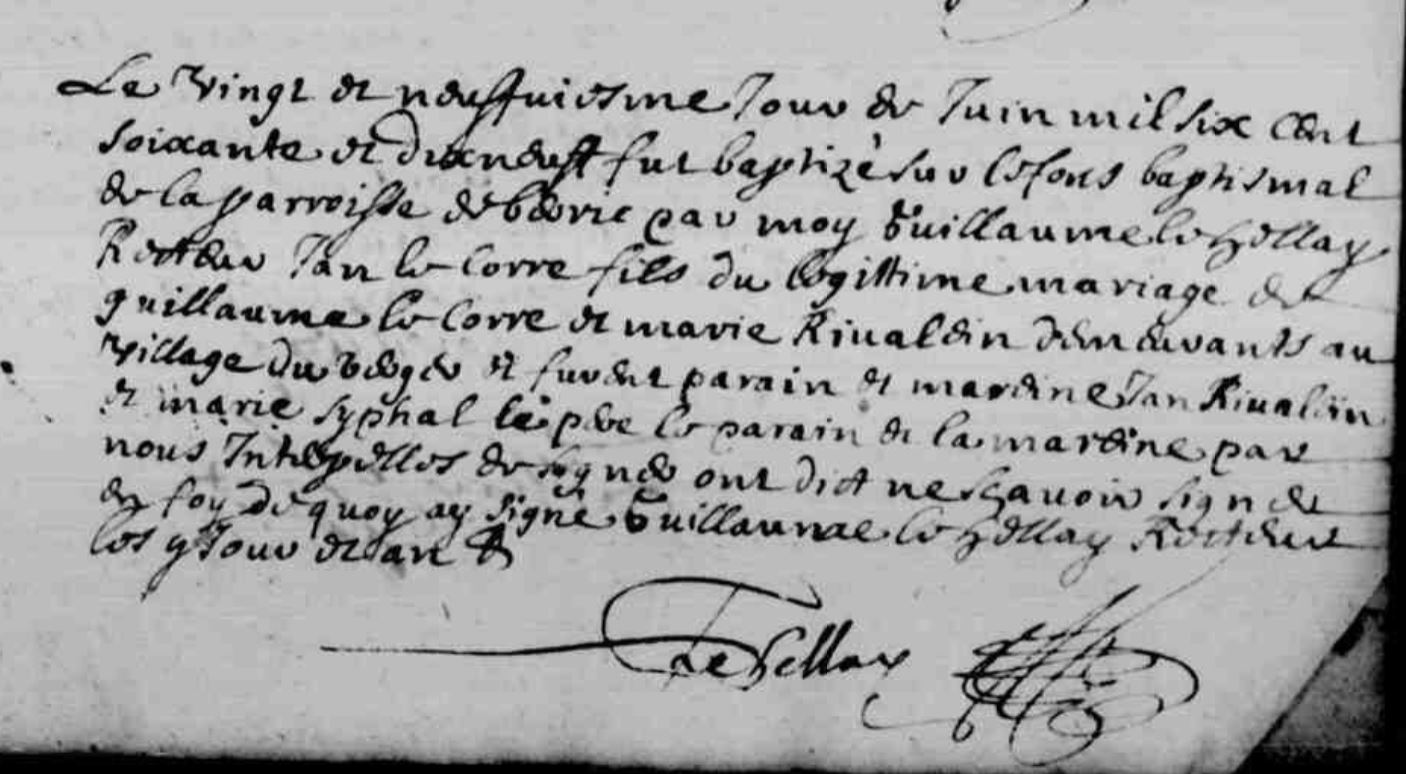 Le vingt et neuffuiesme Jour de Juin mil six cent
soixante et dixneuff fut baptizé sur les fons baptismal
de la parroisse de berric par moy Guillaume le hellay
Recteur Jan le Corre fils du legittime mariage de
guillaume le Corre et marie Riualein demeurants au
village du verger et furent parain et mareine Jan Riualein
et marie syphal le pere le parain et la mareine par
nous Interpelles de signer ont dict ne scauoir signer
en foy de quoy ay signé Guillaume le hellay Recteur
les y Jour et an
Le hellay